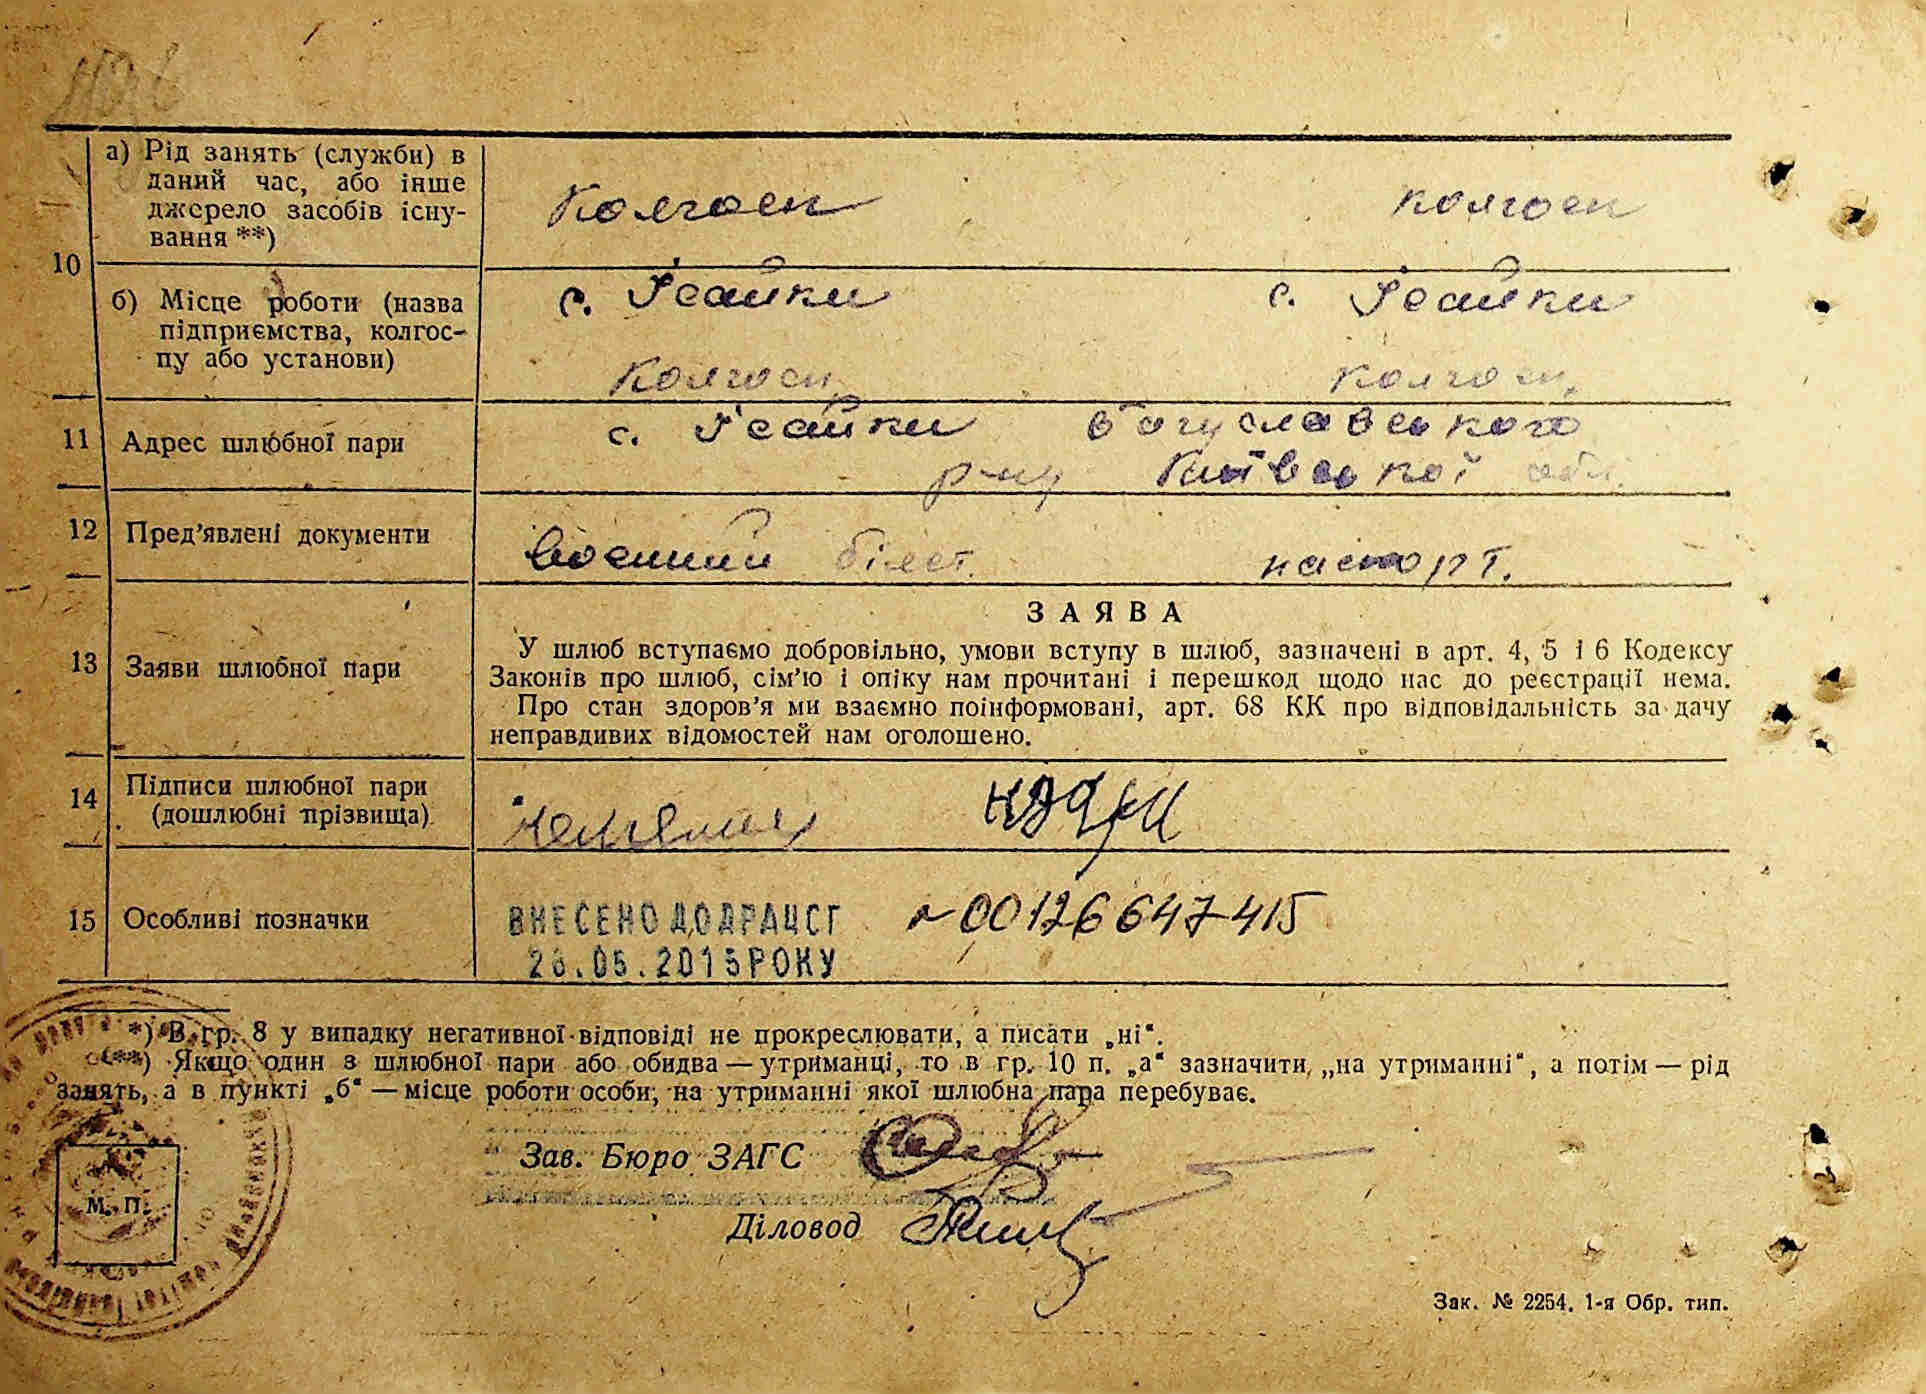 а) Рід занять (служби) в
даний час, або інше
джерело засобів існу-
вання **)
Колгосп колгосп
10
б) Місце роботи (назва
підприємства, колгос-
пу або установи)
с. Ісайки с. Ісайки
Колгосп, колгосп,
11 Адрес шлюбної пари
с. Ісайки Богуславського
р-ну Київської обл.
12 Пред’явлені документи
Воєнний білет. паспорт.
13 Заяви шлюбної пари
ЗАЯВА
У шлюб вступаємо добровільно, умови вступу в шлюб, зазначені в арт. 4, 5 і 6 Кодексу
Законів про шлюб, сім’ю і опіку нам прочитані і перешкод щодо нас до реєстрації нема.
Про стан здоров’я ми взаємно поінформовані, арт. 68 КК про відповідальність за дачу
неправдивих відомостей нам оголошено.
14 Підписи шлюбної пари
(дошлюбні прізвища)
15 Особливі позначки
ВНЕСЕНО ДО ДРАЦСГ 00126647415
28.05.2015 РОКУ
*) В гр. 8 у випадку негативної відповіді не прокреслювати, а писати „ні“.
**) Якщо один з шлюбної пари або обидва — утриманці, то в гр. 10 п. „а“ зазначити „на утриманні“, а потім — рід
занять, а в пункті „б“ — місце роботи особи, на утриманні якої шлюбна пара перебуває.
Зав. Бюро ЗАГС
М. П.
Діловод
Зак. № 2254. 1-я Обр. тип.